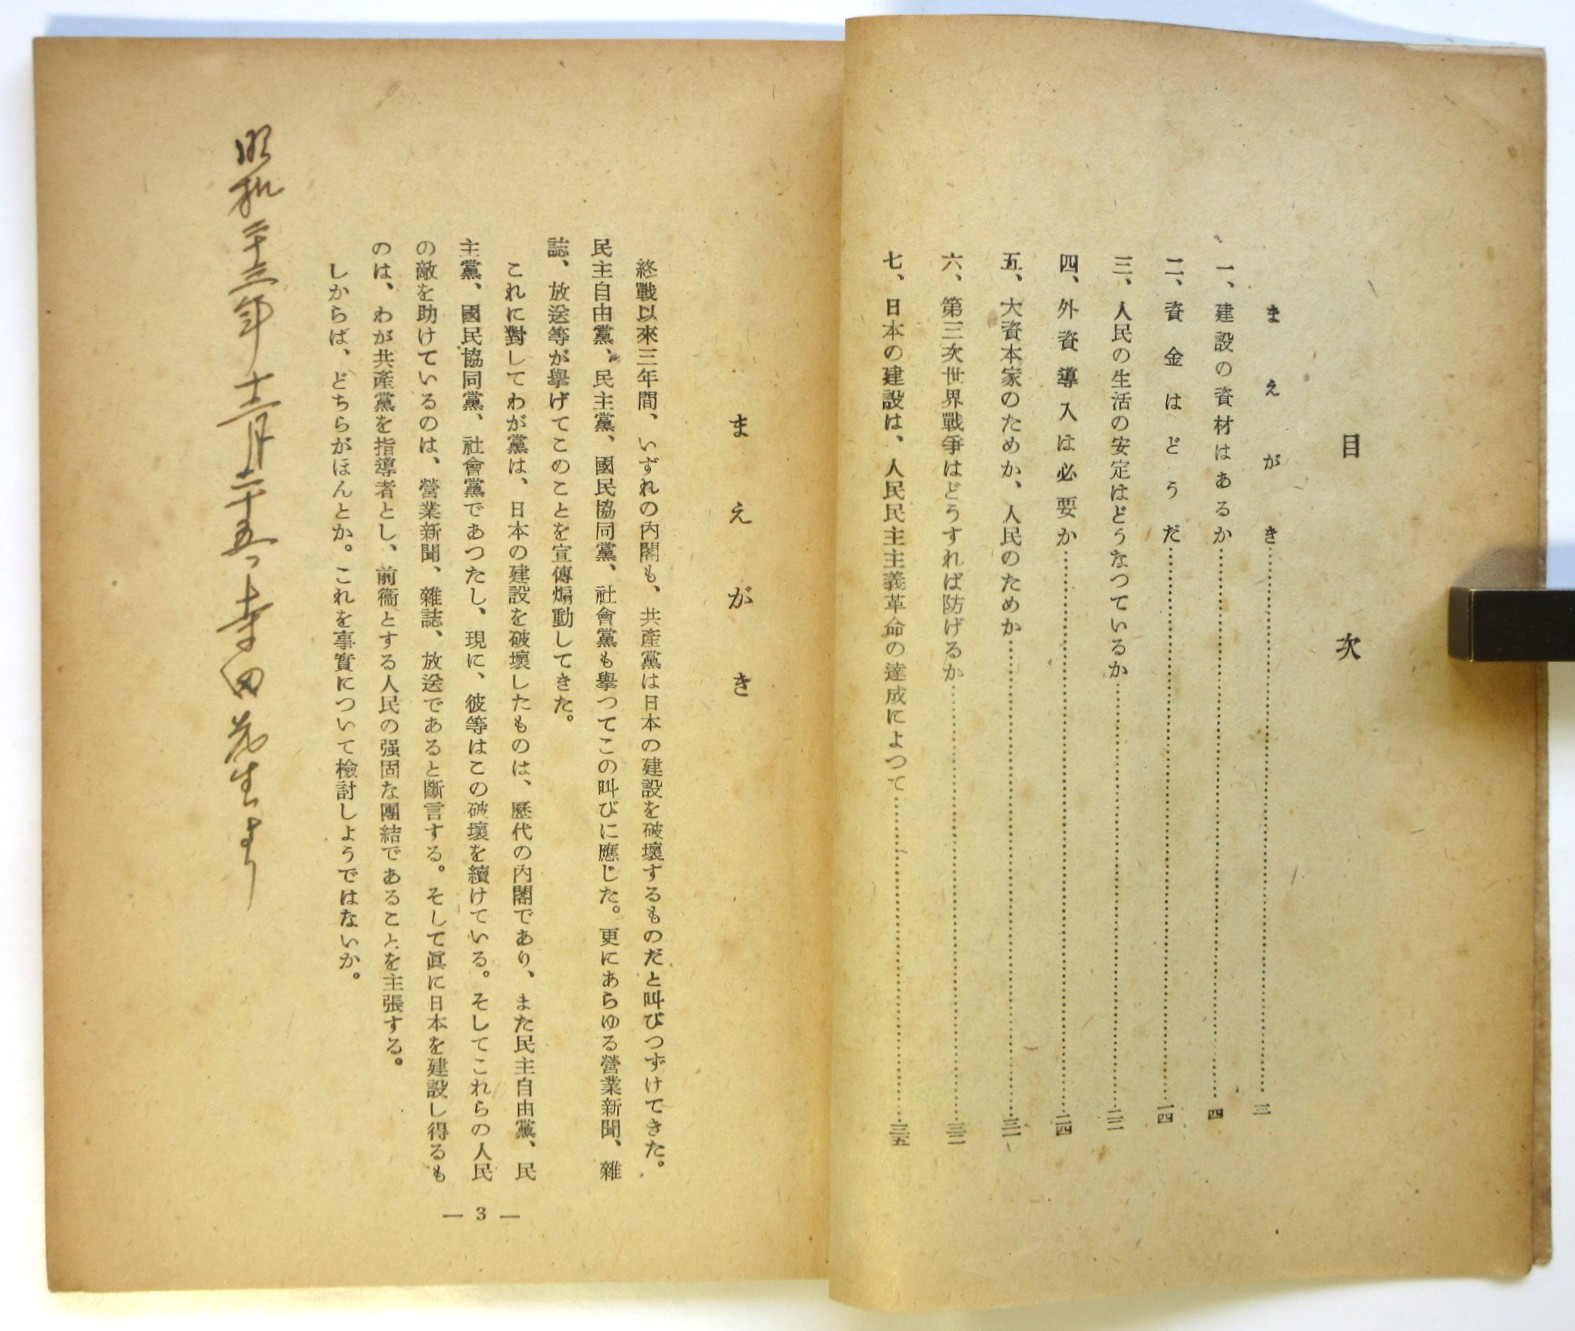 目次
まえがき……三
一、建設の資材はあるか……四
二、資金はどうだ……一四
三、人民の生活の安定はどうなつているか……二二
四、外資導入は必要か……二四
五、大資本家のためか、人民のためか……三一
六、第三次世界戰爭はどうすれば防げるか……三二
七、日本の建設は、人民民主主義革命の達成によつて……三五
まえがき
終戰以來三年間、いずれの内閣も、共産黨は日本の建設を破壞するものだと叫びつずけてきた。
民主自由黨、民主黨、國民協同黨、社會黨も擧つてこの叫びに應じた。更にあらゆる營業新聞、雜
誌、放送等が擧げてこのことを宣傳煽動してきた。
これに對してわが黨は、日本の建設を破壞したものは、歷代の内閣であり、また民主自由黨、民
主黨、國民協同黨、社會黨であつたし、現に、彼等はこの破壞を續けている。そしてこれらの人民
の敵を助けているのは、營業新聞、雜誌、放送であると斷言する。そして眞に日本を建設し得るも
のは、わが共産黨を指導者とし、前衞とする人民の强固な團結であることを主張する。
しからば、どちらがほんとか。これを事實について檢討しようではないか。
— 3 —
昭和二十三年十二月二十五日寺田茂生より